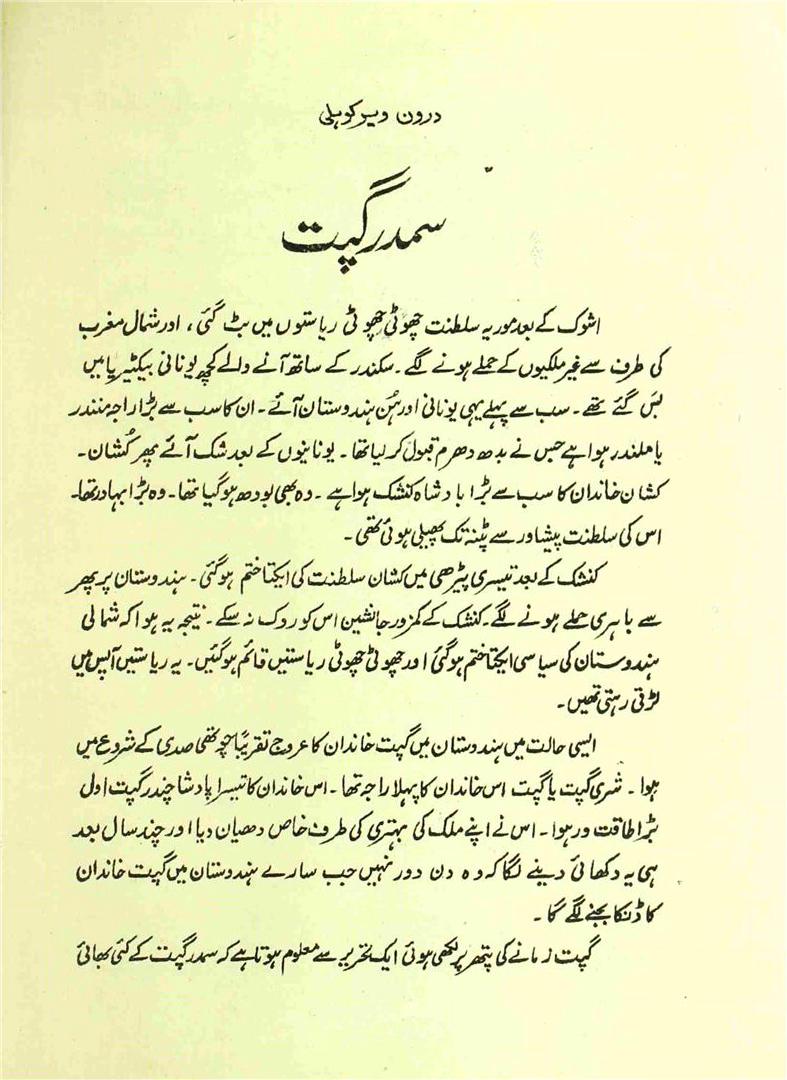 درون ویر کوہلی
سمدر گپت
اشوک کے بعد موریہ سلطنت چھوٹی چھوٹی ریاستوں میں بٹ گئی، اور شمال مغرب
کی طرف سے غیر ملکیوں کے حملے ہونے لگے۔ سکندر کے ساتھ آنے والے کچھ یونانی بیکٹیریا میں
بس گئے تھے۔ سب سے پہلے یہی یونانی اور ہُن ہندوستان آئے۔ ان کا سب سے بڑا راجہ منندر
یا ملندر ہوا ہے جس نے بدھ دھرم قبول کر لیا تھا۔ یونانیوں کے بعد شک آئے پھر کُشان۔
کشان خاندان کا سب سے بڑا بادشاہ کنشک ہوا ہے۔ وہ بھی بودھ ہو گیا تھا۔ وہ بڑا بہادر تھا۔
اس کی سلطنت پیشاور سے پٹنہ تک پھیلی ہوئی تھی۔
کنشک کے بعد تیسری پیڑھی میں کشان سلطنت کی ایکتا ختم ہو گئی۔ ہندوستان پر پھر
سے باہری حملے ہونے لگے۔ کنشک کے کمزور جانشین اس کو روک نہ سکے۔ نتیجہ یہ ہوا کہ شمالی
ہندوستان کی سیاسی ایکتا ختم ہو گئی اور چھوٹی چھوٹی ریاستیں قائم ہو گئیں۔ یہ ریاستیں آپس میں
لڑتی رہتی تھیں۔
ایسی حالت میں ہندوستان میں گپت خاندان کا عروج تقریباً چوتھی صدی کے شروع میں
ہوا۔ شری گپت یا گپت اس خاندان کا پہلا راجہ تھا۔ اس خاندان کا تیسرا بادشاہ چندر گپت اول
بڑا طاقت ور ہوا۔ اس نے اپنے ملک کی بہتری کی طرف خاص دھیان دیا اور چند سال بعد
ہی یہ دکھائی دینے لگا کہ وہ دن دور نہیں جب سارے ہندوستان میں گپت خاندان
کا ڈنکا بجنے لگے گا۔
گپت زمانے کی پتھر پر لکھی ہوئی ایک تحریر سے معلوم ہوتا ہے کہ سمدر گپت کے کئی بھائی